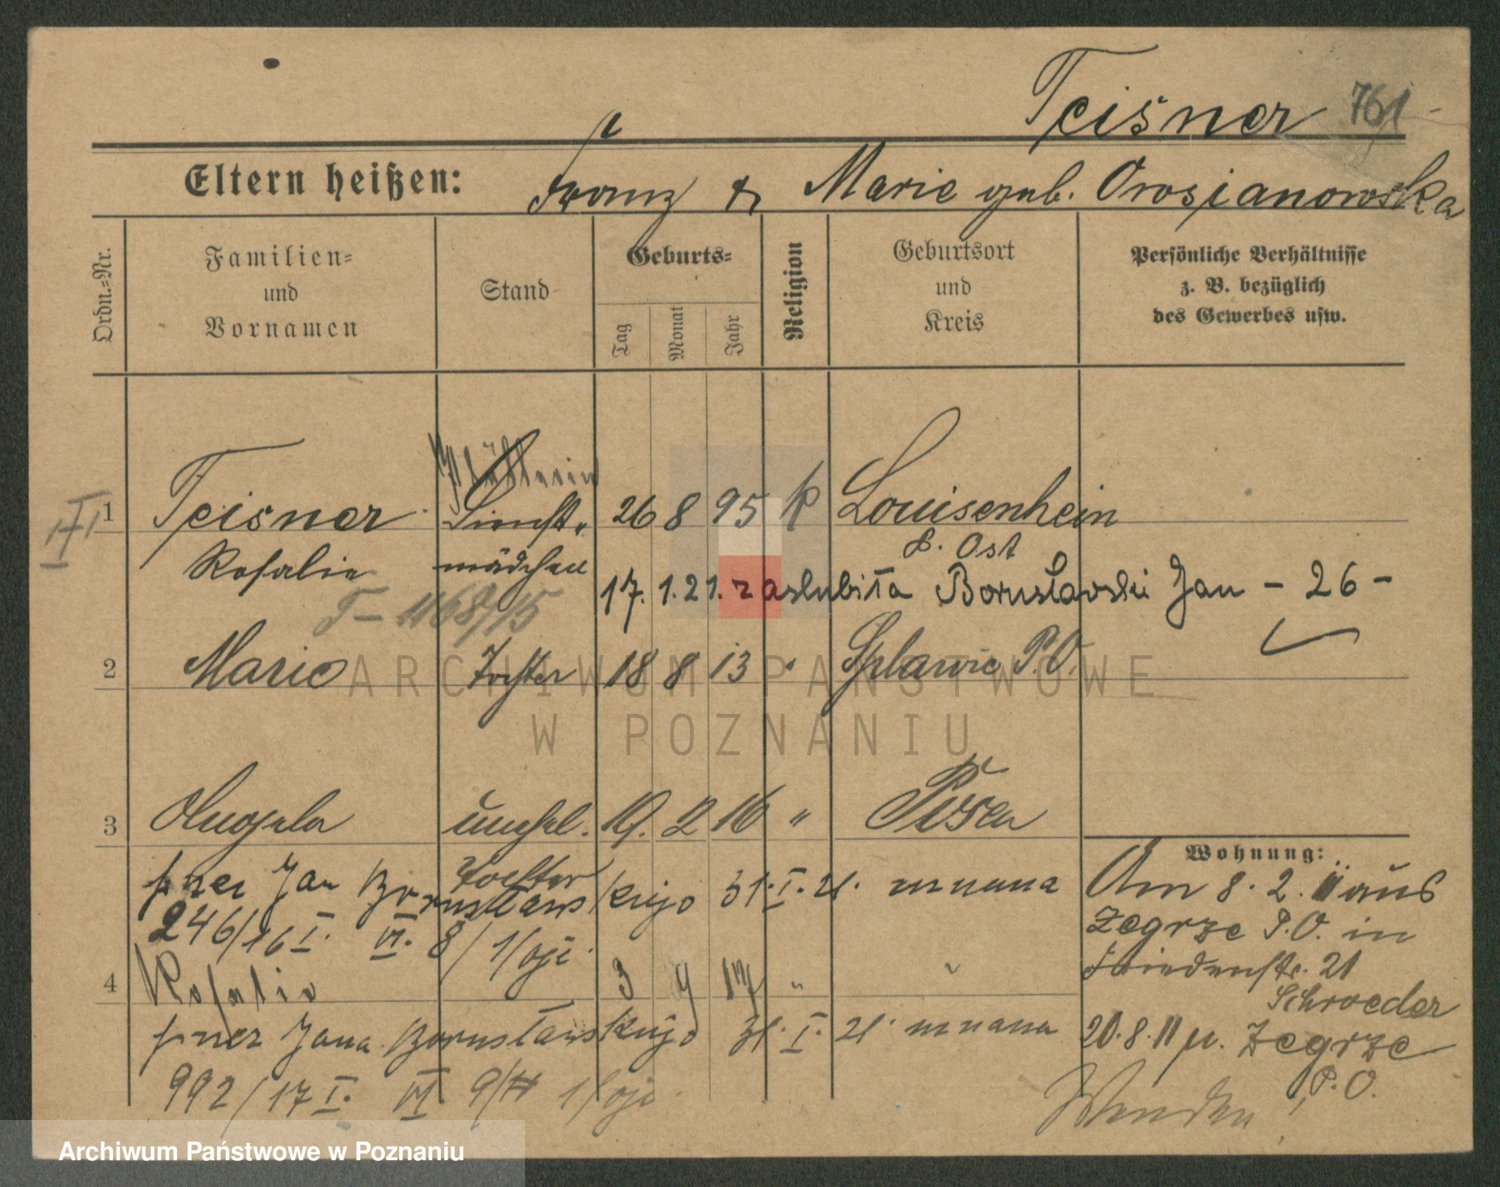 Teisner 761
Eltern heißen: Franz & Marie geb. Orosianowska
Ordn.-Nr.
Familien-
und
Vornamen
Stand
Geburts-
Tag
Monat
Jahr
Religion
Geburtsort
und
Kreis
Persönliche Verhältnisse
z. B. bezüglich
des Gewerbes usw.
1 Teisner Dienst- 26 8 95 k Louisenhein
Rosalie mädchen P. Ost
17. 1. 21. zaślubiła Borusławski Jan - 26 -
2 Marie Tochter 18 8 13 " Splawie P.O.
3 Angela unehel. 19. 2 16 " Posen
Tochter
przez Jan Borusławskiego 31. I. 21. uznana
246/16 I. VI. 8/
4 Rosalie 3 9 17 " "
przez Jana Borusławskiego 31. I. 21. uznana
992/17 I. VI. 9/
Wohnung:
Am 8. 2. 11 aus
Zegrze P.O. in
Friedenstr. 21
Schroeder
20. 8. 11 n. Zegrze
P.O.
Wenden!
ARCHIWUM PAŃSTWOWE
W POZNANIU
Archiwum Państwowe w Poznaniu